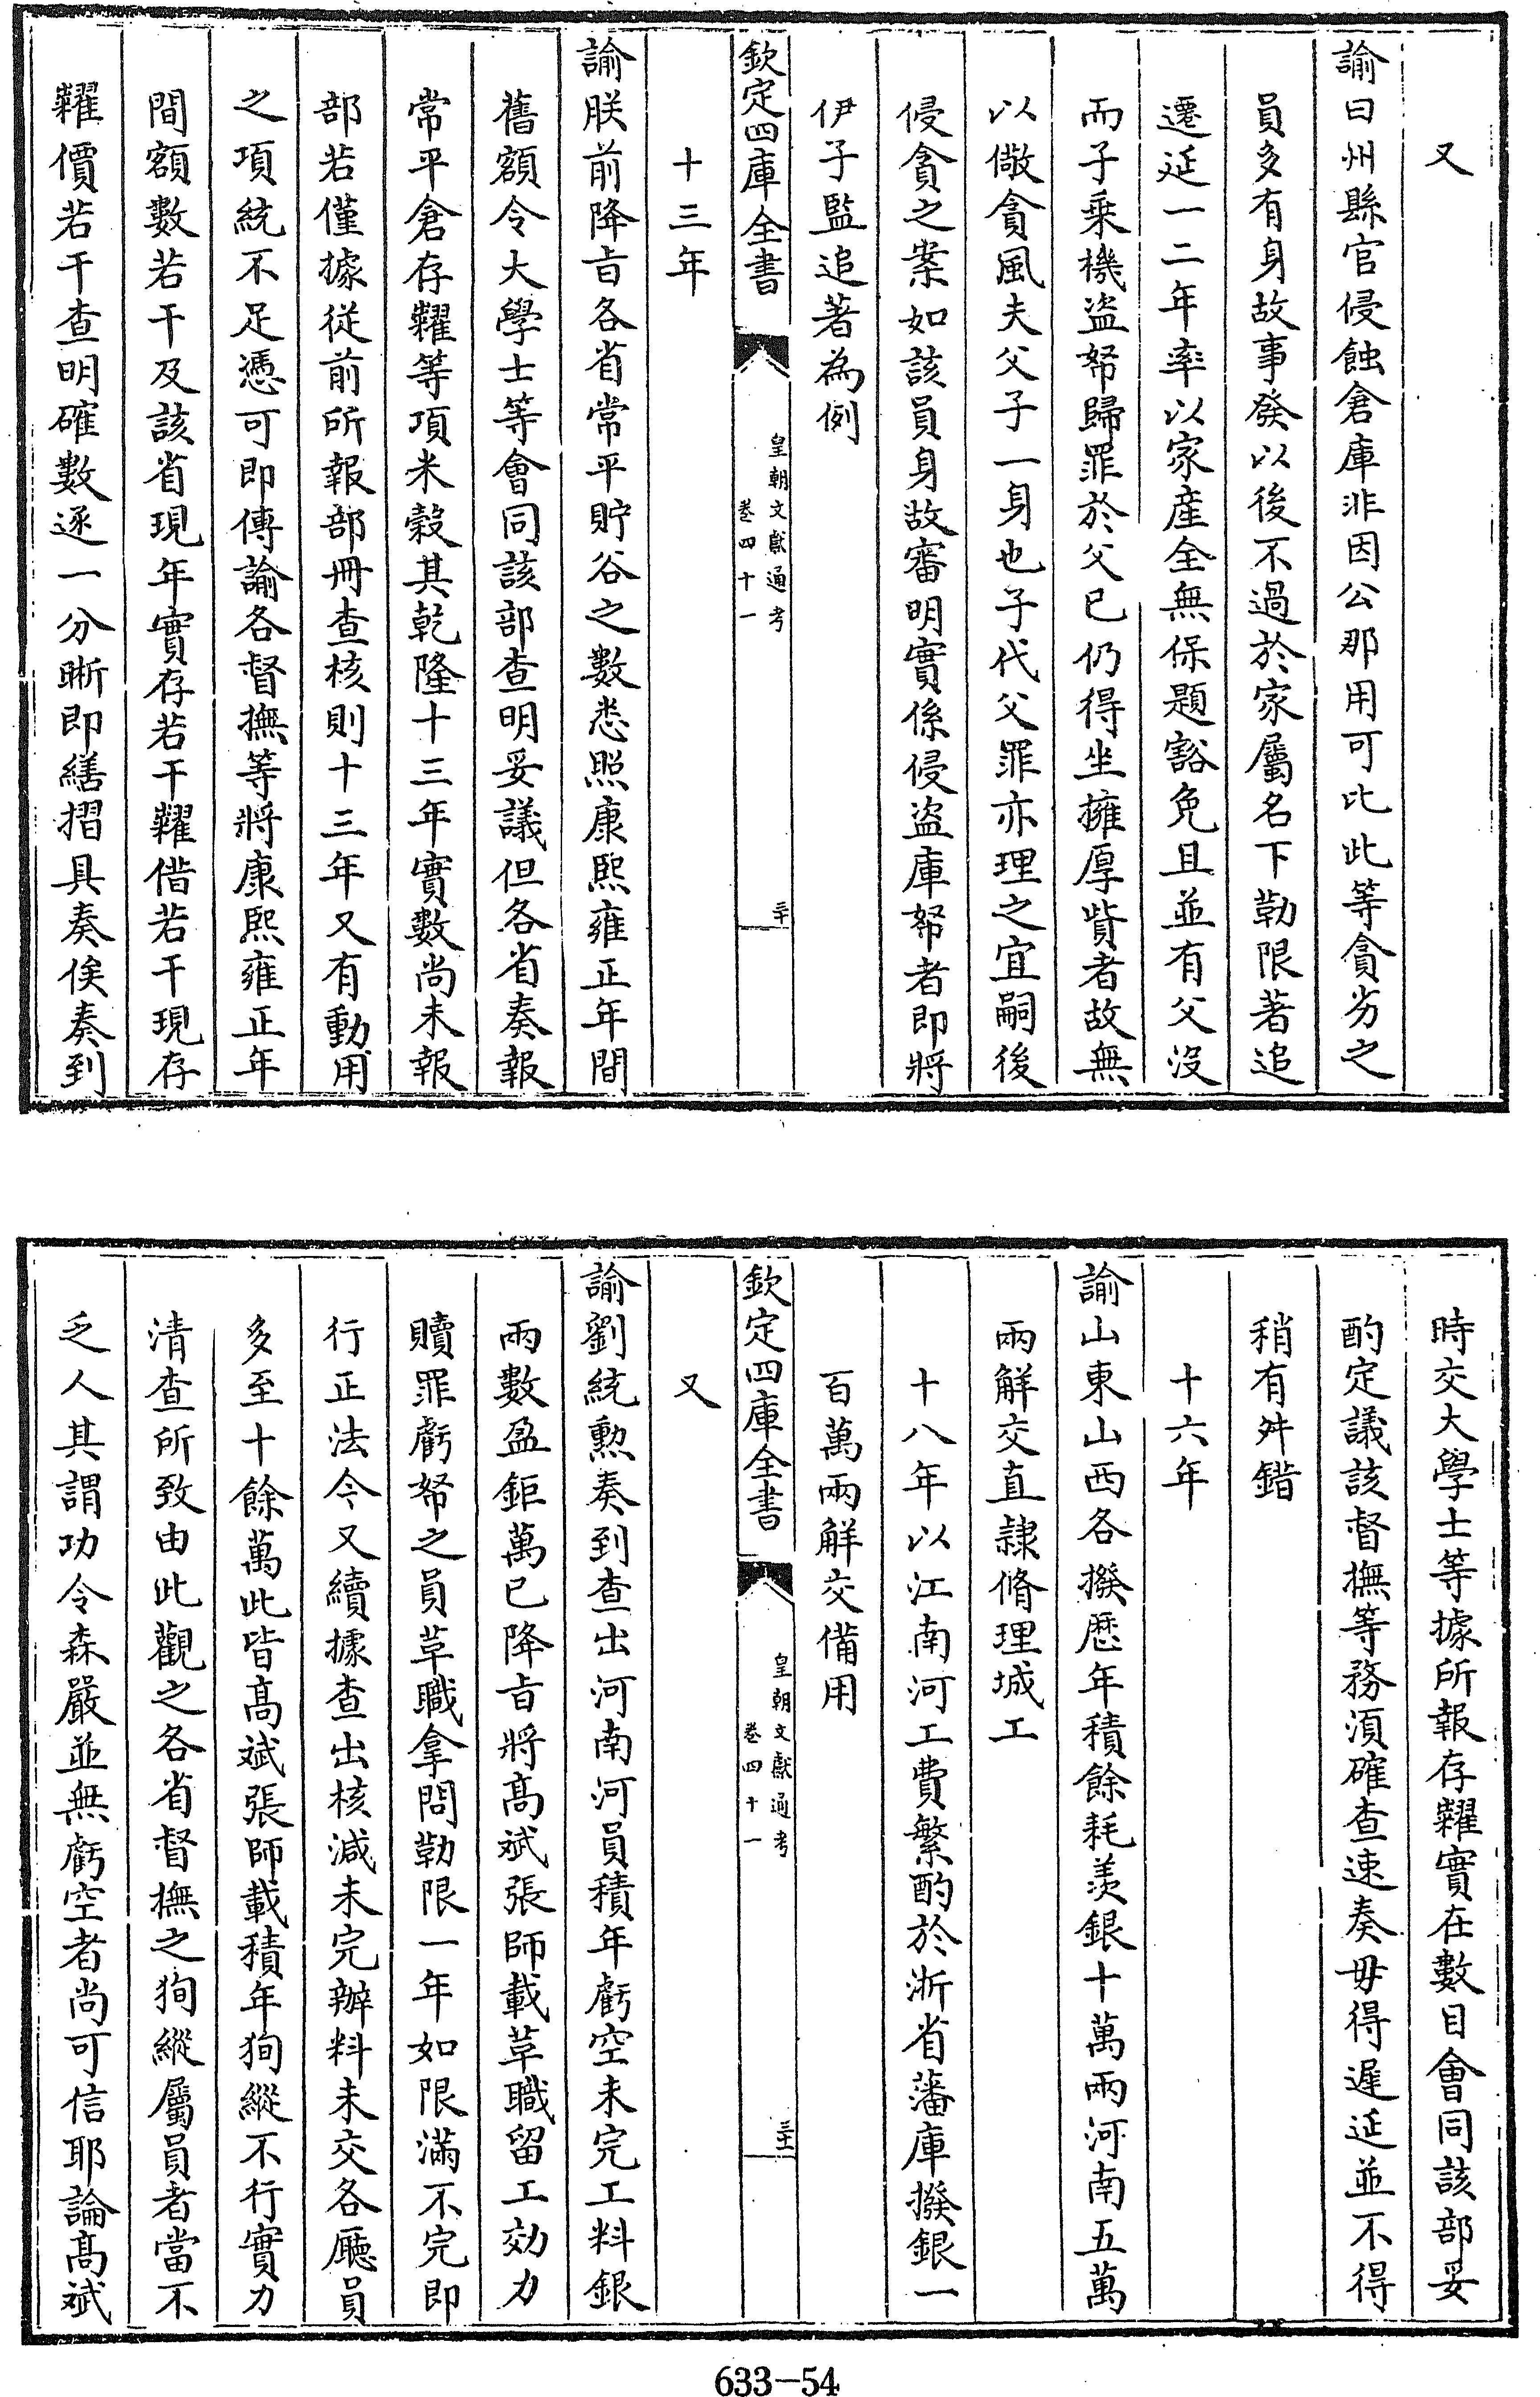 又
諭曰州縣官侵蝕倉庫非因公那用可比此等貪劣之
員多有身故事發以後不過於家屬名下勒限著追
遷延一二年率以家産全無保題豁免且並有父沒
而子乗機盜帑歸罪於父已仍得坐擁厚貲者故無
以儆貪風夫父子一身也子代父罪亦理之宜嗣後
侵貪之案如該員身故審明實係侵盜庫帑者即將
伊子監追著為例
欽定四庫全書
皇朝文獻通考
卷四十一
三十
十三年
諭朕前降㫖各省常平貯谷之數悉照康熙雍正年間
舊額令大學士等會同該部查明妥議但各省奏報
常平倉存糶等項米穀其乾隆十三年實數尚未報
部若僅據從前所報部冊查核則十三年又有動用
之項統不足憑可即傳諭各督撫等將康熙雍正年
間額數若干及該省現年實存若干糶借若干現存
糶價若干查明確數逐一分晣即繕摺具奏俟奏到
時交大學士等據所報存糶實在數目會同該部妥
酌定議該督撫等務湏確查速奏毋得遲延並不得
稍有舛錯
十六年
諭山東山西各撥歴年積餘耗羨銀十萬兩河南五萬
兩解交直隷脩理城工
十八年以江南河工費繁酌於浙省藩庫撥銀一
百萬兩解交備用
欽定四庫全書
皇朝文獻通考
卷四十一
三十一
又
諭劉統勲奏到查出河南河員積年虧空未完工料銀
兩數盈鉅萬已降㫖將髙斌張師載革職留工効力
贖罪虧帑之員革職拿問勒限一年如限滿不完即
行正法今又續據查出核減未完辦料未交各廳員
多至十餘萬此皆髙斌張師載積年狥縱不行實力
清查所致由此觀之各省督撫之狥縱屬員者當不
乏人其謂功令森嚴並無虧空者尚可信耶論髙斌
633-54